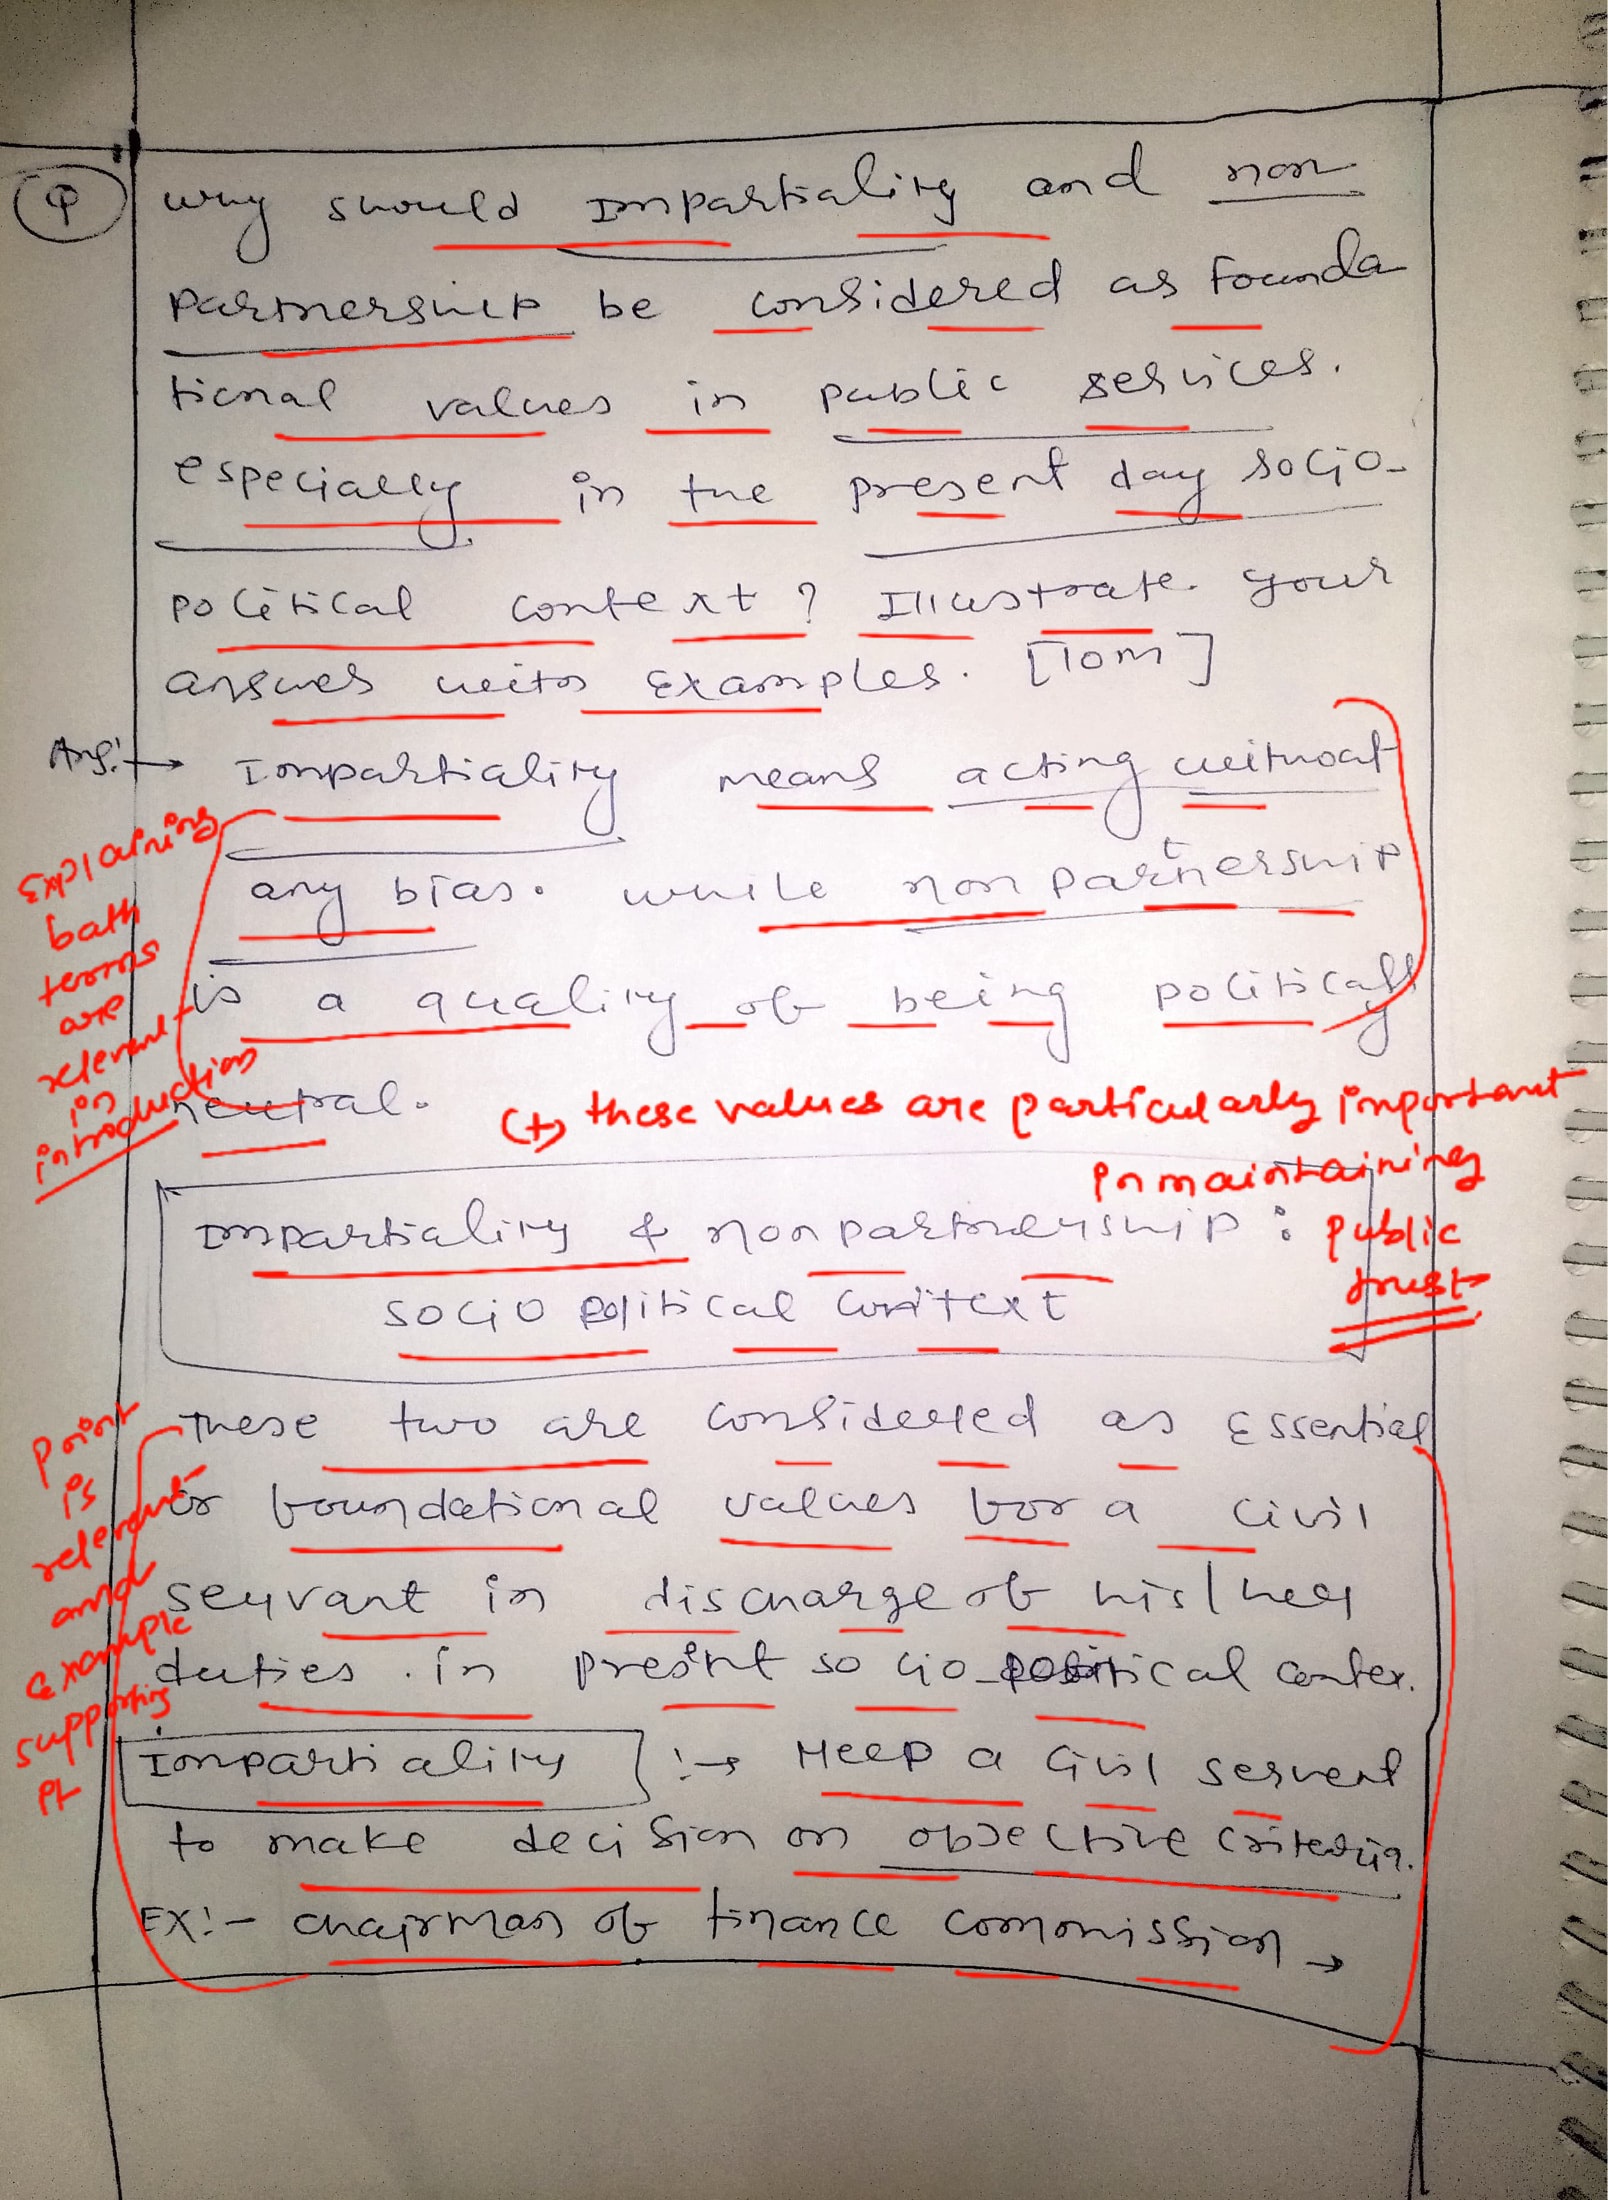 Q Why should Impartiality and non
Partnership be considered as Founda
tional values in public services.
especially in the present day socio-
political context ? Illustrate your
answer with Examples. [10m]
Ans:→ Impartiality means acting without
any bias. while non partnership
is a quality of being politically
neutral.
Explaining
both
terms
are
relevant
in
introduction
(+) these values are particularly important
in maintaining
public
trust
Impartiality & non partnership :
socio political context
These two are considered as Essential
or foundational values for a civil
servant in discharge of his/her
duties . in present socio-political contex.
Impartiality :→ Help a Civil servent
to make decision on objective criteria.
EX:- chairman of finance commission →
point
is
relevant
and
example
supporting
pt